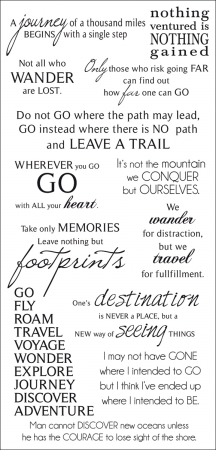 A journey of a thousand miles
BEGINS with a single step
nothing
ventured is
NOTHING
gained
Not all who
WANDER
are LOST.
Only those who risk going FAR
can find out
how far one can GO
Do not GO where the path may lead,
GO instead where there is NO path
and LEAVE A TRAIL
WHEREVER you GO
GO
with ALL your heart.
It's not the mountain
we CONQUER
but OURSELVES.
Take only MEMORIES
Leave nothing but
footprints
We
wander
for distraction,
but we
travel
for fullfillment.
GO
FLY
ROAM
TRAVEL
VOYAGE
WONDER
EXPLORE
JOURNEY
DISCOVER
ADVENTURE
One's destination
is NEVER a PLACE, but a
NEW way of seeing THINGS
I may not have GONE
where I intended to GO
but I think I've ended up
where I intended to BE.
Man cannot DISCOVER new oceans unless
he has the COURAGE to lose sight of the shore.